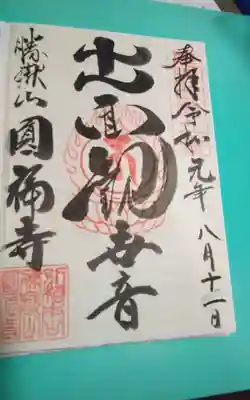 奉拝 令和元年 八月十一日
出雲観世音
勝嶽山 圓福寺